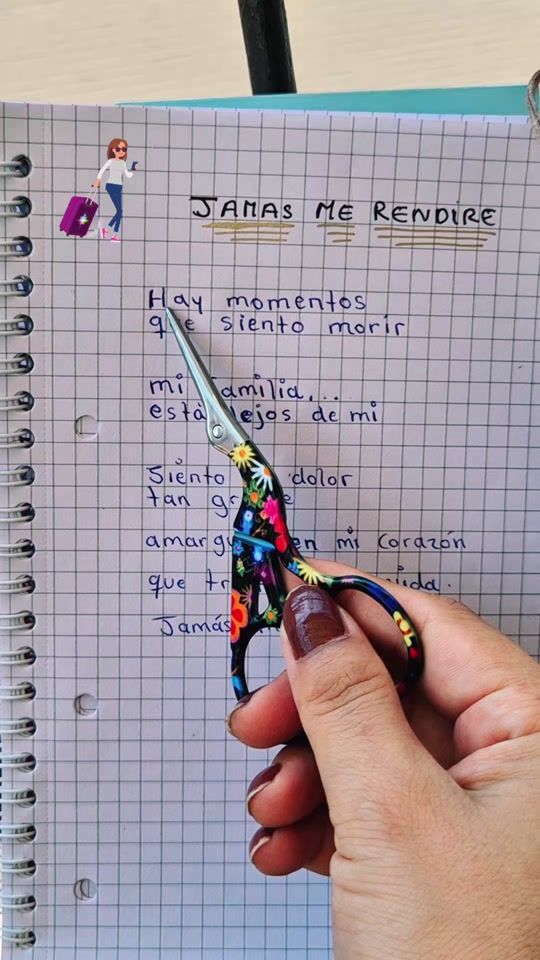 JAMAS ME RENDIRE
Hay momentos
que siento morir
mi familia...
está lejos de mi
Siento dolor
tan
en mi Corazón
que
Jamás